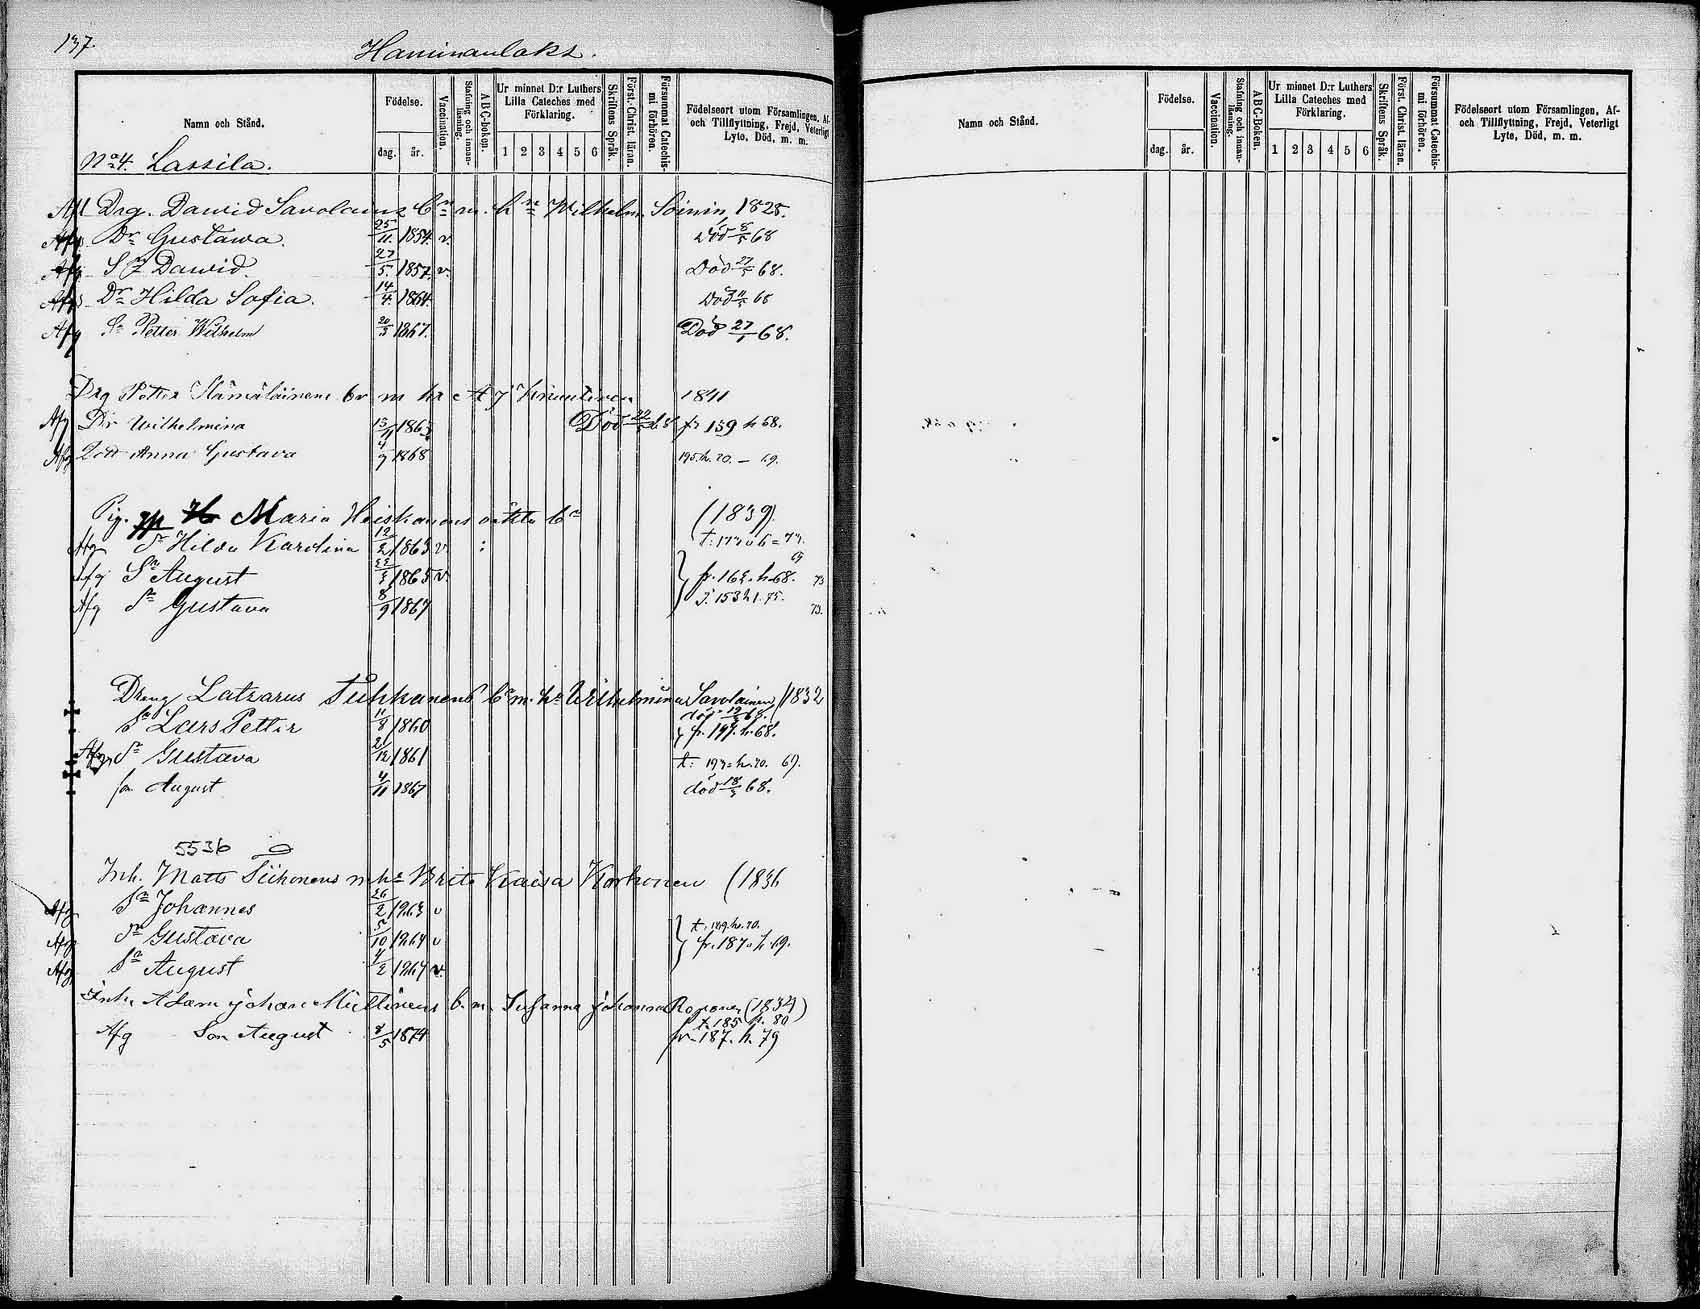 137.
Haminanlaks.
Namn och Stånd.
Födelse.
dag. år.
Vaccination.
Stafning och innan-läsning.
ABC-boken.
Ur minnet D:r Luthers Lilla Cateches med Förklaring.
1 2 3 4 5 6
Skriftens Språk.
Först. Christ. läran.
Försummat Catechis-mi förhören.
Födelseort utom Församlingen, Af-
och Tillflyttning, Frejd, Veterligt
Lyte, Död, m. m.
No 4. Lassila.
Afl Drg. Dawid Savolainens bn m. hn Wilhelm. Soinin, 1828.
Dr Gustawa. 25/11 1854. v. död 8/5 68
S Dawid. 27/5 1857. v. Död 27/5 68.
Dr Hilda Sofia. 14/4 1864. Död 11/5 68
Afg Sn Petter Wilhelm 20/3 1867. Död 27/1 68.
Drg Petter Hämäläinens br m hr A J 1841
Afg Dr Wilhelmina 13/11 1865 Död 22/5 68 fr 159 h 68.
Afg Dotr Anna Gustava 4/9 1868 195. h. 70. – 69.
Pig. Maria Heiskanens oäkta bn (1839)
Afg Dr Hilda Karolina 12/2 1863 v.
Afg Sn August 1865 v. fr. 162. h. 68. 73
Afg Dr Gustava 8/9 1867 153 h. 75. 73.
Dreng Latzarus Tuhkanens bn m. hu Wilhelmina Savolainen, (1832
död 19/5 68.
Sn Lars Petter 11/8 1860 fr. 197. h. 68.
Afg Dr Gustava 2/12 1861 t: 193 h. 70. 69.
son August 4/11 1867 död 18/5 68.
5536
Inh. Matts Tiihonens m hu Brita Kaisa Korhonen (1836
Afg Sn Johannes 26/2 1863 v
Afg Dr Gustava 5/10 1864 v t. 189. h. 70. fr. 187. h. 69.
Afg Sn August 4/2 1867 v.
Inh. Adam Johan Miettinens b. m. Susanna Johanna Roponen (1834)
t. 185 h. 80
Afg Son August 8/5 1874 fr. 187. h. 79
Namn och Stånd.
Födelse.
dag. år.
Vaccination.
Stafning och innan-läsning.
ABC-Boken.
Ur minnet D:r Luthers Lilla Cateches med Förklaring.
1 2 3 4 5 6
Skriftens Språk.
Först. Christ. läran.
Försummat Catechis-mi förhören.
Födelseort utom Församlingen, Af-
och Tillflyttning, Frejd, Veterligt
Lyte, Död, m. m.